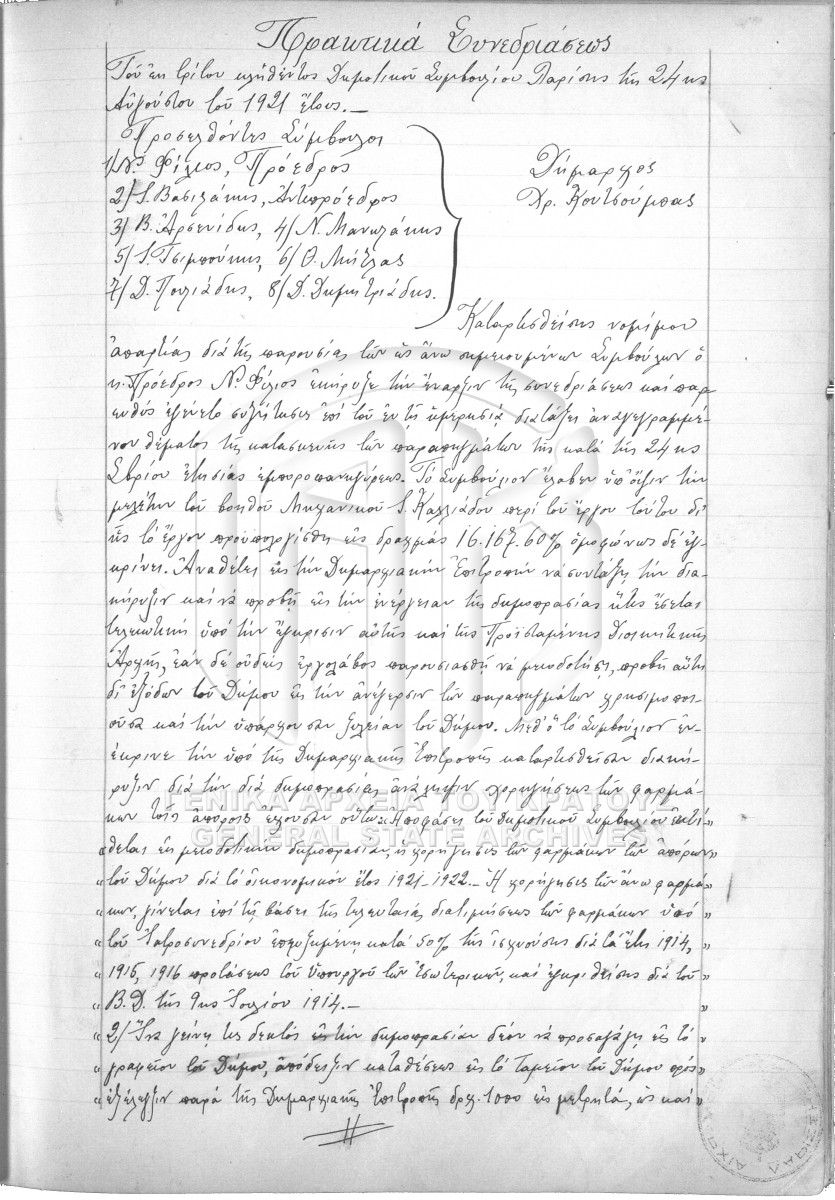 Πρακτικά Συνεδριάσεως
Τοῦ ἐκ τρίτου κληθέντος Δημοτικοῦ Συμβουλίου Λαρίσης τῆς 24ης
Αὐγούστου τοῦ 1921 ἔτους.—
Προσελθόντες Σύμβουλοι
1/ Ν. Φίλιος, Πρόεδρος
2/ Ι. Βασιλάκης, Ἀντιπρόεδρος
3/ Β. Ἀρσενίδης, 4/ Ν. Μανωλάκης
5/ Ι. Τσιμπούκης, 6/ Θ.
7/ Δ. Παλιάδης, 8/ Δ. Δημητριάδης.
Δήμαρχος
Χρ. Κουτσούμπας
Καταρτισθείσης νομίμου
ἀπαρτίας διὰ τῆς παρουσίας τῶν ὡς ἄνω σημειουμένων Συμβούλων ὁ
κ. Πρόεδρος Ν. Φίλιος ἐκήρυξε τὴν ἔναρξιν τῆς συνεδριάσεως καὶ παρ
ευθὺς ἐγένετο συζήτησις ἐπὶ τοῦ ἐν τῇ ἡμερησίᾳ διατάξει ἀναγεγραμμέ-
νου θέματος τῆς κατασκευῆς τῶν παραπηγμάτων τῆς κατὰ τῆς 24ης
7βρίου ἐτησίας ἐμποροπανηγύρεως. Τὸ Συμβούλιον ἔλαβεν ὑπ' ὄψιν τὴν
μελέτην τοῦ βοηθοῦ Μηχανικοῦ Ι. Καλλιάδου περὶ τοῦ ἔργου τούτου δι'
ἧς τὸ ἔργον προϋπολογίσθη εἰς δραχμὰς 16.167.60% ὁμοφώνως δὲ ἐγ-
κρίνει. Ἀναθέτει εἰς τὴν Δημαρχιακὴν Ἐπιτροπὴν νὰ συντάξῃ τὴν δια-
κήρυξιν καὶ νὰ προβῇ εἰς τὴν ἐνέργειαν τῆς δημοπρασίας ἥτις ἔσεται
τελειωτικὴ ὑπὸ τὴν ἔγκρισιν αὐτῆς καὶ τῆς Προϊσταμένης Διοικητικῆς
Ἀρχῆς, ἐὰν δὲ οὐδεὶς ἐργολάβος παρουσιασθῇ νὰ μειοδοτήσῃ, προβῇ αὕτη
δι' ἐξόδων τοῦ Δήμου εἰς τὴν ἀνέγερσιν τῶν παραπηγμάτων χρησιμοποι-
οῦσα καὶ τὴν ὑπάρχουσαν ξυλείαν τοῦ Δήμου. Μεθ' ὃ τὸ Συμβούλιον ἐν-
έκρινε τὴν ὑπὸ τῆς Δημαρχιακῆς Ἐπιτροπῆς καταρτισθεῖσαν διακή-
ρυξιν διὰ τὴν διὰ δημοπρασίας ἀνάληψιν χορηγήσεως τῶν φαρμά-
κων τοῖς ἀπόροις ἔχουσαν οὕτω: «Ἀποφάσει τοῦ Δημοτικοῦ Συμβουλίου ἐκτί-»
«θεται εἰς μειοδοτικὴν δημοπρασίαν, ἡ χορήγησις τῶν φαρμάκων τῶν ἀπόρων»
«τοῦ Δήμου διὰ τὸ οἰκονομικὸν ἔτος 1921-1922.— Ἡ χορήγησις τῶν ἄνω φαρμά»
«κων, γίνεται ἐπὶ τῇ βάσει τῆς τελευταίας διατιμήσεως τῶν φαρμάκων ὑπὸ»
«τοῦ Ἰατροσυνεδρίου ἐπηυξημένης κατὰ 50% τῆς ἰσχυούσης διὰ τὰ ἔτη 1914,
«1915, 1916 προτάσεως τοῦ Ὑπουργοῦ τῶν Ἐσωτερικῶν, καὶ ἐγκριθείσης διὰ τοῦ»
«Β.Δ. τῆς 9ης Ἰουλίου 1914.—»
«2/ Ἵνα γείνῃ τις δεκτὸς εἰς τὴν δημοπρασίαν δέον νὰ προσαγάγῃ εἰς τὸ»
«γραφεῖον τοῦ Δήμου, ἀπόδειξιν καταθέσεως εἰς τὸ Ταμεῖον τοῦ Δήμου πρὸς»
«ἐξέλεγξιν παρὰ τῆς Δημαρχιακῆς Ἐπιτροπῆς δραχ. 1000 εἰς μετρητά, ὡς καὶ»
ΓΕΝΙΚΑ ΑΡΧΕΙΑ ΤΟΥ ΚΡΑΤΟΥΣ
GENERAL STATE ARCHIVES